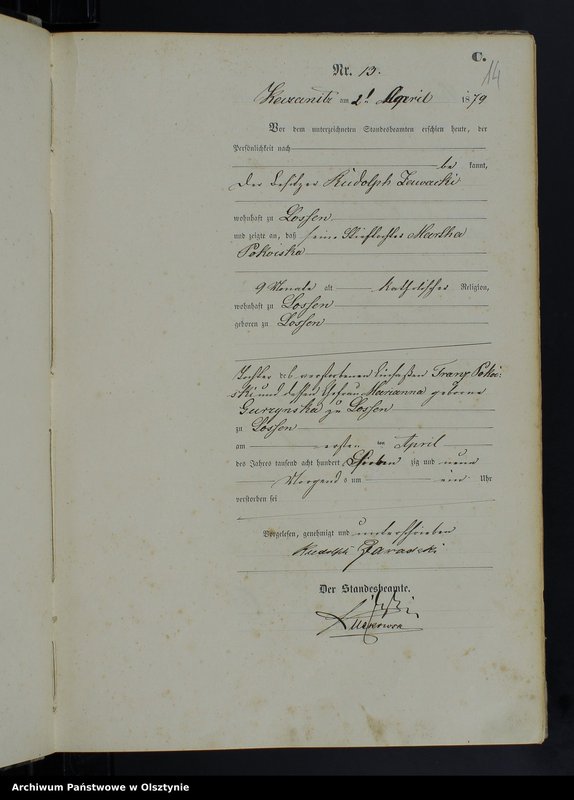 C.
14
Nr. 13.
am 2t April 1879
Vor dem unterzeichneten Standesbeamten erschien heute, der
Persönlichkeit nach
be kannt,
der Besitzer Rudolph
wohnhaft zu Lossen
und zeigte an, daß seine Stieftochter Martha
Pokoiska
9 Monate alt katholischer Religion,
wohnhaft zu Lossen
geboren zu Lossen
Tochter des verstorbenen Einsaßen Franz Pokoi-
ski und dessen Ehefrau Marianna geborne
zu Lossen
zu Lossen
am ersten ten April
des Jahres tausend acht hundert sieben zig und neun
Morgens um ein Uhr
verstorben sei
Vorgelesen, genehmigt und unterschrieben
Rudolph
Der Standesbeamte.
Archiwum Państwowe w Olsztynie